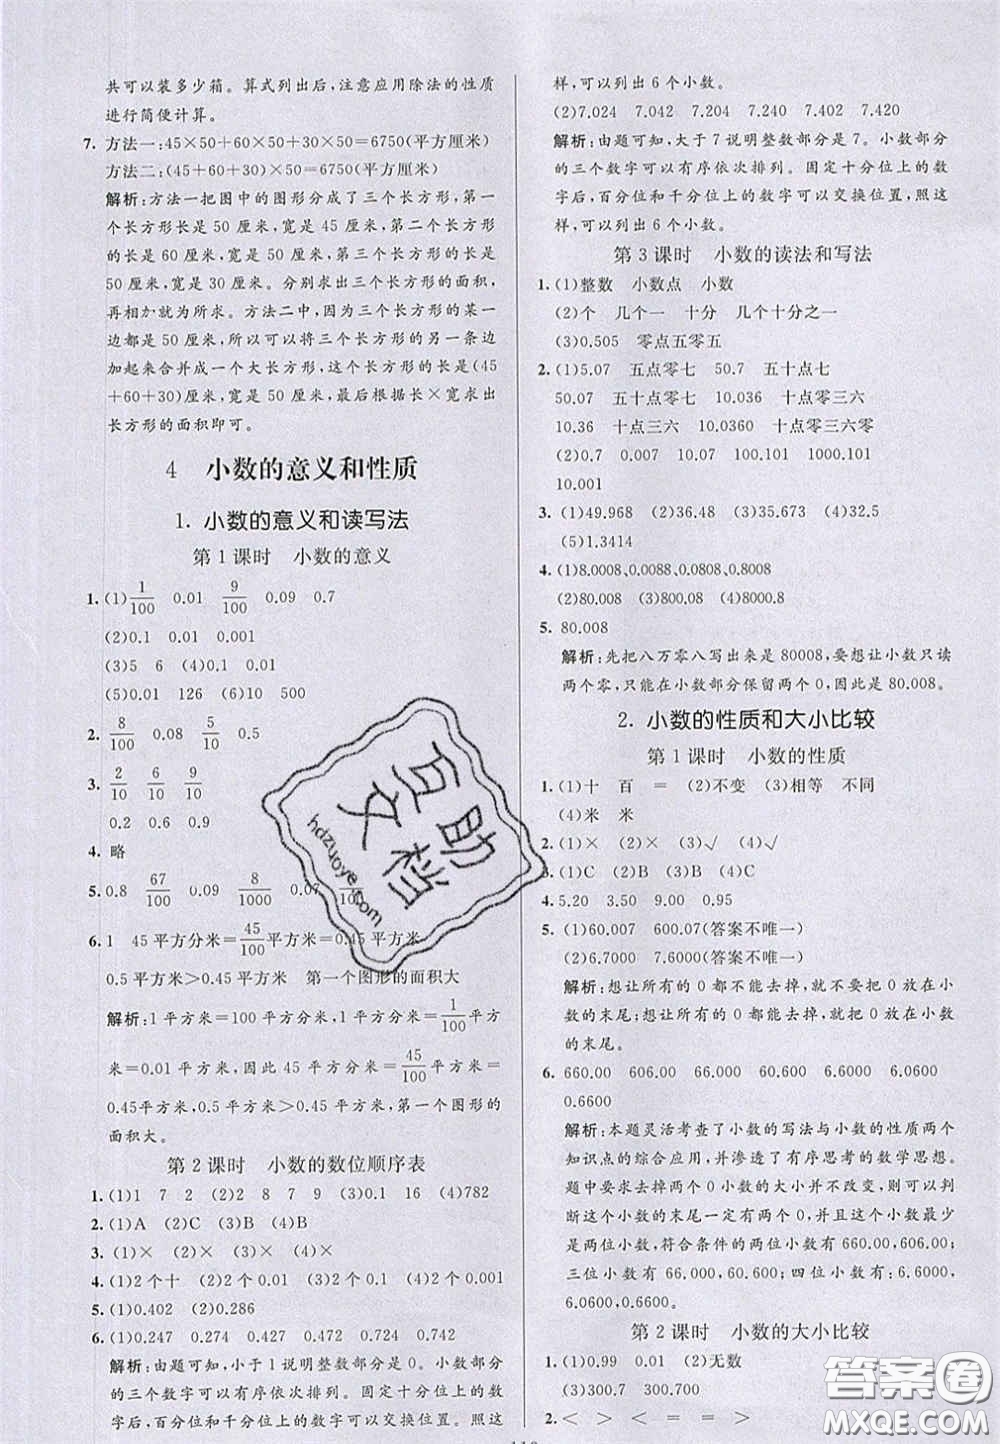 共可以装多少箱。算式列出后,注意应用除法的性质
进行简便计算。
7. 方法一:45×50+60×50+30×50=6750(平方厘米)
方法二:(45+60+30)×50=6750(平方厘米)
解析:方法一把图中的图形分成了三个长方形,第一
个长方形长是 50 厘米,宽是 45 厘米,第二个长方形
的长是 60 厘米,宽是 50 厘米,第三个长方形长是 50
厘米,宽是 30 厘米。分别求出三个长方形的面积,
再相加就为所求。方法二中,因为三个长方形的某一
边都是 50 厘米,所以可以将三个长方形的另一条边
加起来合并成一个大长方形,这个长方形的长是(45
+60+30)厘米,宽是 50 厘米,最后根据长×宽求出
长方形的面积即可。
4 小数的意义和性质
1. 小数的意义和读写法
第 1 课时 小数的意义
1. (1)1/100 0.01 9/100 0.09 0.7
(2)0.1 0.01 0.001
(3)5 6 (4)0.1 0.01
(5)0.01 126 (6)10 500
2. 8/100 0.08 5/10 0.5
3. 2/10 6/10 9/10
0.2 0.6 0.9
4. 略
5. 0.8 67/100 0.09 8/1000 0.007
6. 1 45 平方分米=45/100平方米=0.45 平方米
0.5 平方米>0.45 平方米 第一个图形的面积大
解析:1 平方米=100 平方分米,1 平方分米=1/100平方
米=0.01 平方米,因此 45 平方分米=45/100平方米=
0.45平方米,0.5 平方米>0.45 平方米,第一个图形的
面积大。
第 2 课时 小数的数位顺序表
1. (1)1 7 2 (2)2 8 7 9 (3)9 16 (4)782
2. (1)A (2)C (3)B (4)B
3. (1)× (2)× (3)×
4. (1)2个十 (2)2个0.01 (3)2个0.1 (4)2个0.001
5. (1)0.402 (2)0.286
6. (1)0.247 0.274 0.427 0.472 0.724 0.742
解析:由题可知,小于 1 说明整数部分是 0。小数部分
的三个数字可以有序依次排列。固定十分位上的数
字后,百分位和千分位上的数字可以交换位置,照这
样,可以列出 6 个小数。
(2)7.024 7.042 7.204 7.240 7.402 7.420
解析:由题可知,大于 7 说明整数部分是 7。小数部分
的三个数字可以有序依次排列。固定十分位上的数
字后,百分位和千分位上的数字可以交换位置,照这
样,可以列出 6 个小数。
第 3 课时 小数的读法和写法
1. (1)整数 小数点 小数
(2)个 几个一 十分 几个十分之一
(3)0.505 零点五零五
2. (1)5.07 五点零七 50.7 五十点七
50.07 五十点零七 10.036 十点零三六
10.36 十点三六 10.0360 十点零三六零
(2)100.101 1001.01 1000.11 1000.101
1000.01
3. (1)49.968 (2)36.48 (3)35.673 (4)32.5
(5)1.3414
4. (1)8.0008、0.0088、0.0808、0.8008
(2)80.008 (3)800.08 (4)8000.8
5. 80.008
解析:先把八万零八写出来是 80008,要想让小数只读
两个零,只能在小数部分保留两个 0,所以是 80.008。
2. 小数的性质和大小比较
第 1 课时 小数的性质
1. (1)十 百 = (2)不变 (3)相等 不同
(4)米 米
2. (1)× (2)× (3)√ (4)√
3. (1)C (2)B (3)B (4)C
4. 5.20 3.50 9.00 0.95
5. (1)60.007 600.07(答案不唯一)
(2)6.7000 7.6000(答案不唯一)
解析:想让所有的 0 都不能去掉,就不要把 0 放在小
数的末尾;想让所有的 0 都能去掉,就把 0 放在小数
的末尾。
6. 660.00 606.00 66.000 60.600 6.6000
0.6600
解析:本题灵活考查了小数的写法与小数的性质两个
知识点的综合应用,并渗透了有序思考的数学思想。
题中要求去掉两个 0 小数的大小并不改变,则可以判
断这个小数的末尾一定有两个 0,并且这个小数最少
是两位小数,符合条件的两位小数有 660.00,606.00;
三位小数有 66.000,60.600;四位小数有:6.6000,
6.0600,0.6600。
第 2 课时 小数的大小比较
1. (1)0.99 0.01 (2)无数
(3)300.7 300.700
2. < > < = = >
自助
文档
hdzuoye.com
答案圈
MXQE.COM